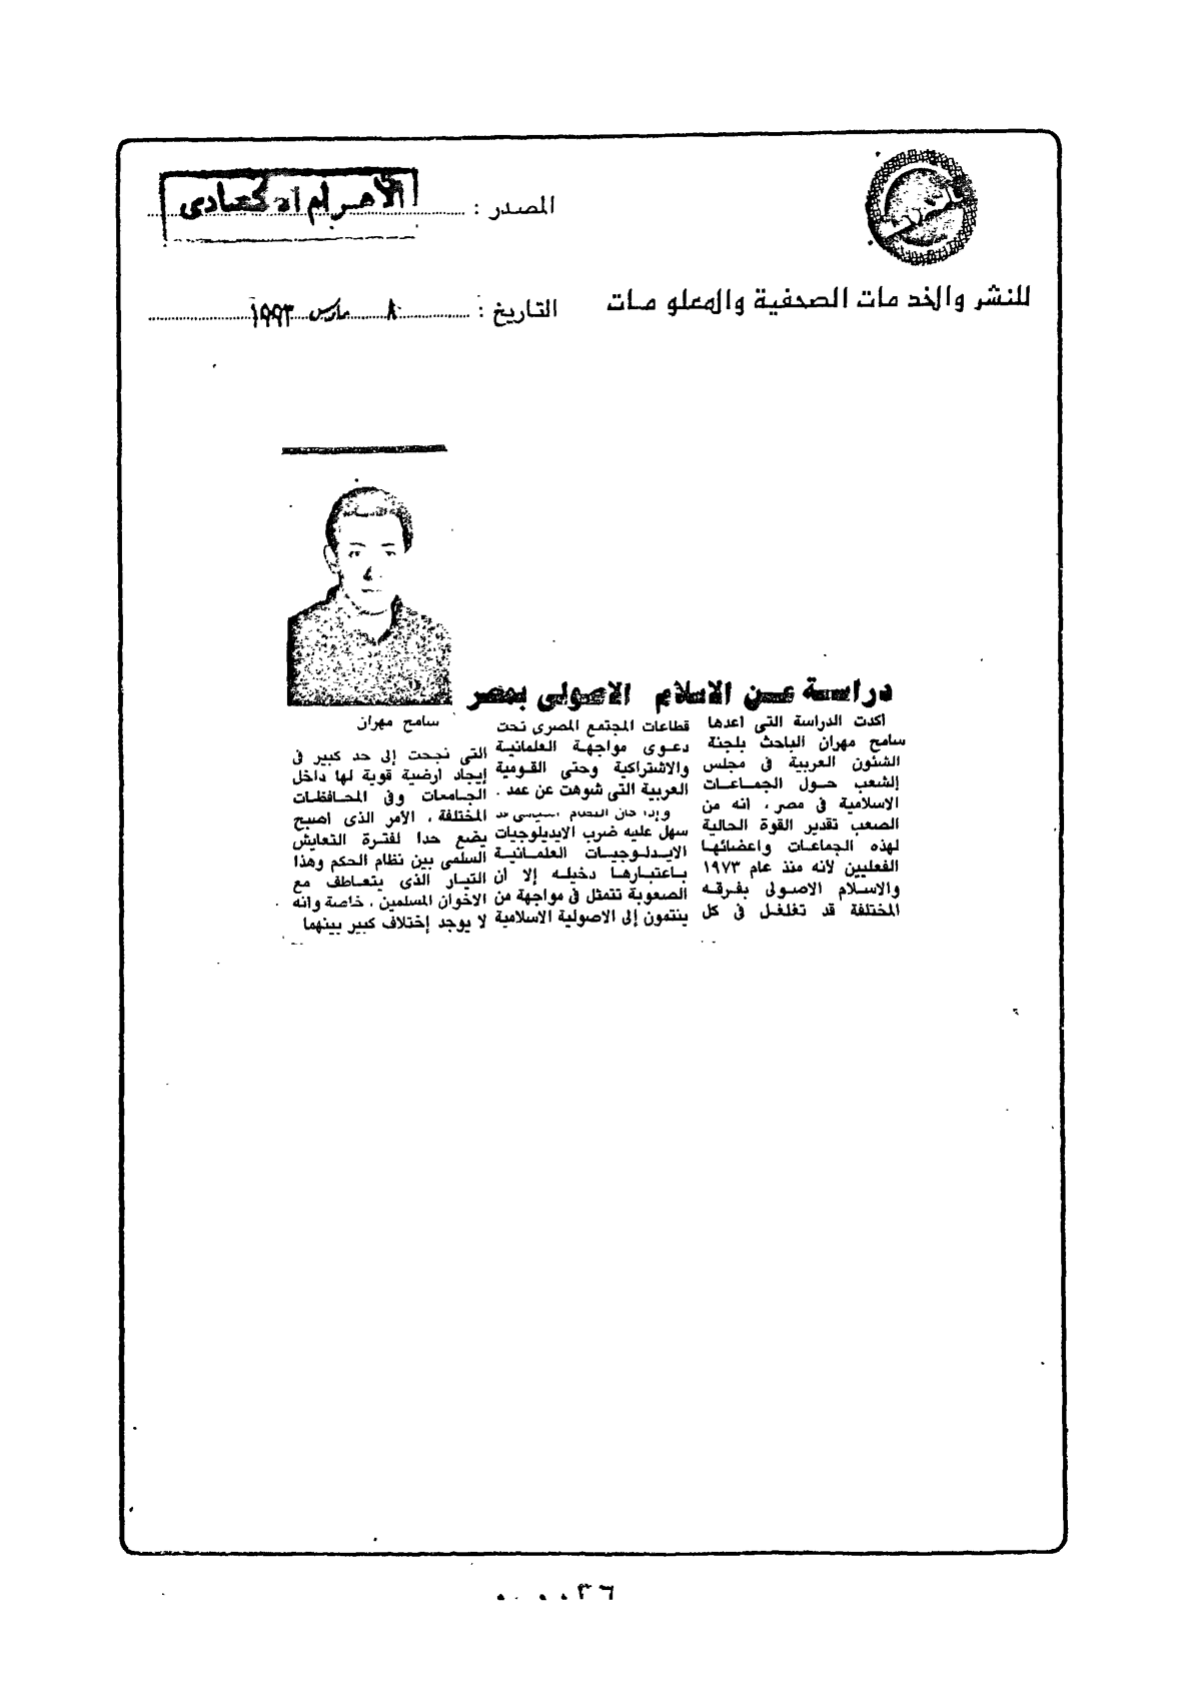 المصدر : الأهرام الاقتصادى
للنشر والخدمات الصحفية والمعلومات
التاريخ : ٨ مارس ١٩٩٣
دراسة عن الاسلام الاصولى بمصر
سامح مهران
اكدت الدراسة التى اعدها
سامح مهران الباحث بلجنة
الشئون العربية فى مجلس
الشعب حول الجماعات
الاسلامية فى مصر ، انه من
الصعب تقدير القوة الحالية
لهذه الجماعات واعضائها
الفعليين لأنه منذ عام ١٩٧٣
والاسلام الاصولى بفرقه
المختلفة قد تغلغل فى كل
قطاعات المجتمع المصرى تحت
دعوى مواجهة العلمانية
والاشتراكية وحتى القومية
العربية التى شوهت عن عمد .
وإذا كان النظام السياسى قد
سهل عليه ضرب الايديلوجيات
الايدلوجيات العلمانية
باعتبارها دخيله إلا أن
الصعوبة تتمثل فى مواجهة من
ينتمون إلى الاصولية الاسلامية
التى نجحت إلى حد كبير فى
إيجاد ارضية قوية لها داخل
الجامعات وفى المحافظات
المختلفة ، الأمر الذى اصبح
يضع حدا لفترة التعايش
السلمى بين نظام الحكم وهذا
التيار الذى يتعاطف مع
الاخوان المسلمين ، خاصة وانه
لا يوجد إختلاف كبير بينهما